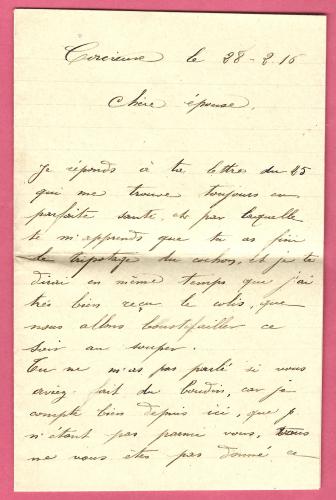 Corcieux le 28-2-16
Chère épouse,
Je réponds à ta lettre du 25
qui me trouve toujours en
parfaite santé, et par laquelle
tu m'apprends que tu as fini
le tripotage du cochon, et je te
dirai en même temps que j'ai
très bien reçu le colis, que
nous allons boustifailler ce
soir au souper.
Tu ne m'as pas parlé si vous
aviez fait du boudin, car je
compte bien depuis ici, que je
n'étant pas parmi vous, vous
ne vous êtes pas donné ce